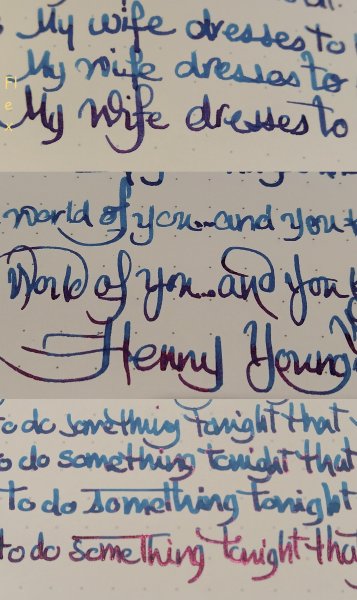 My wife dresses to
My wife dresses to
My wife dresses to
Flex
world of you...and you
World of you...and you
Henny Young
to do something tonight that
to do something tonight that
to do something tonight
to do something tonight that